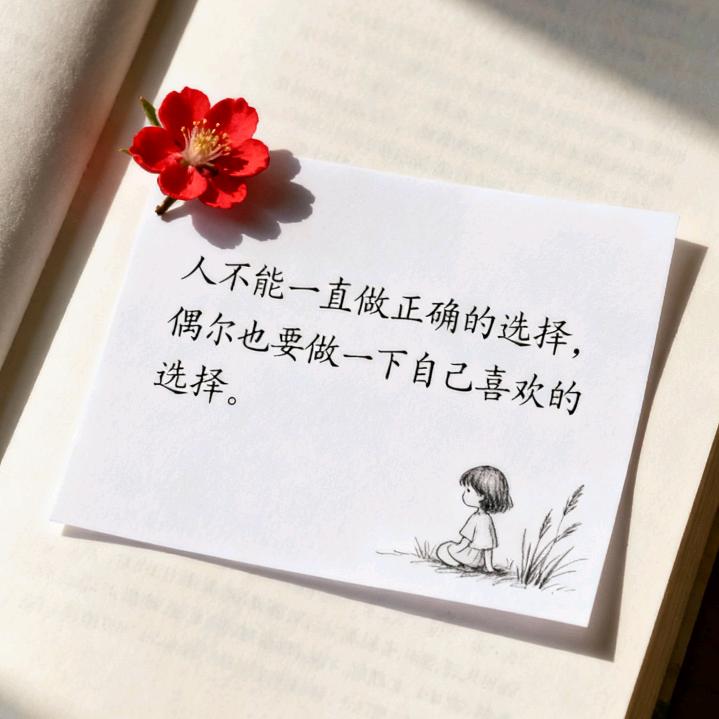 人不能一直做正确的选择，
偶尔也要做一下自己喜欢的
选择。